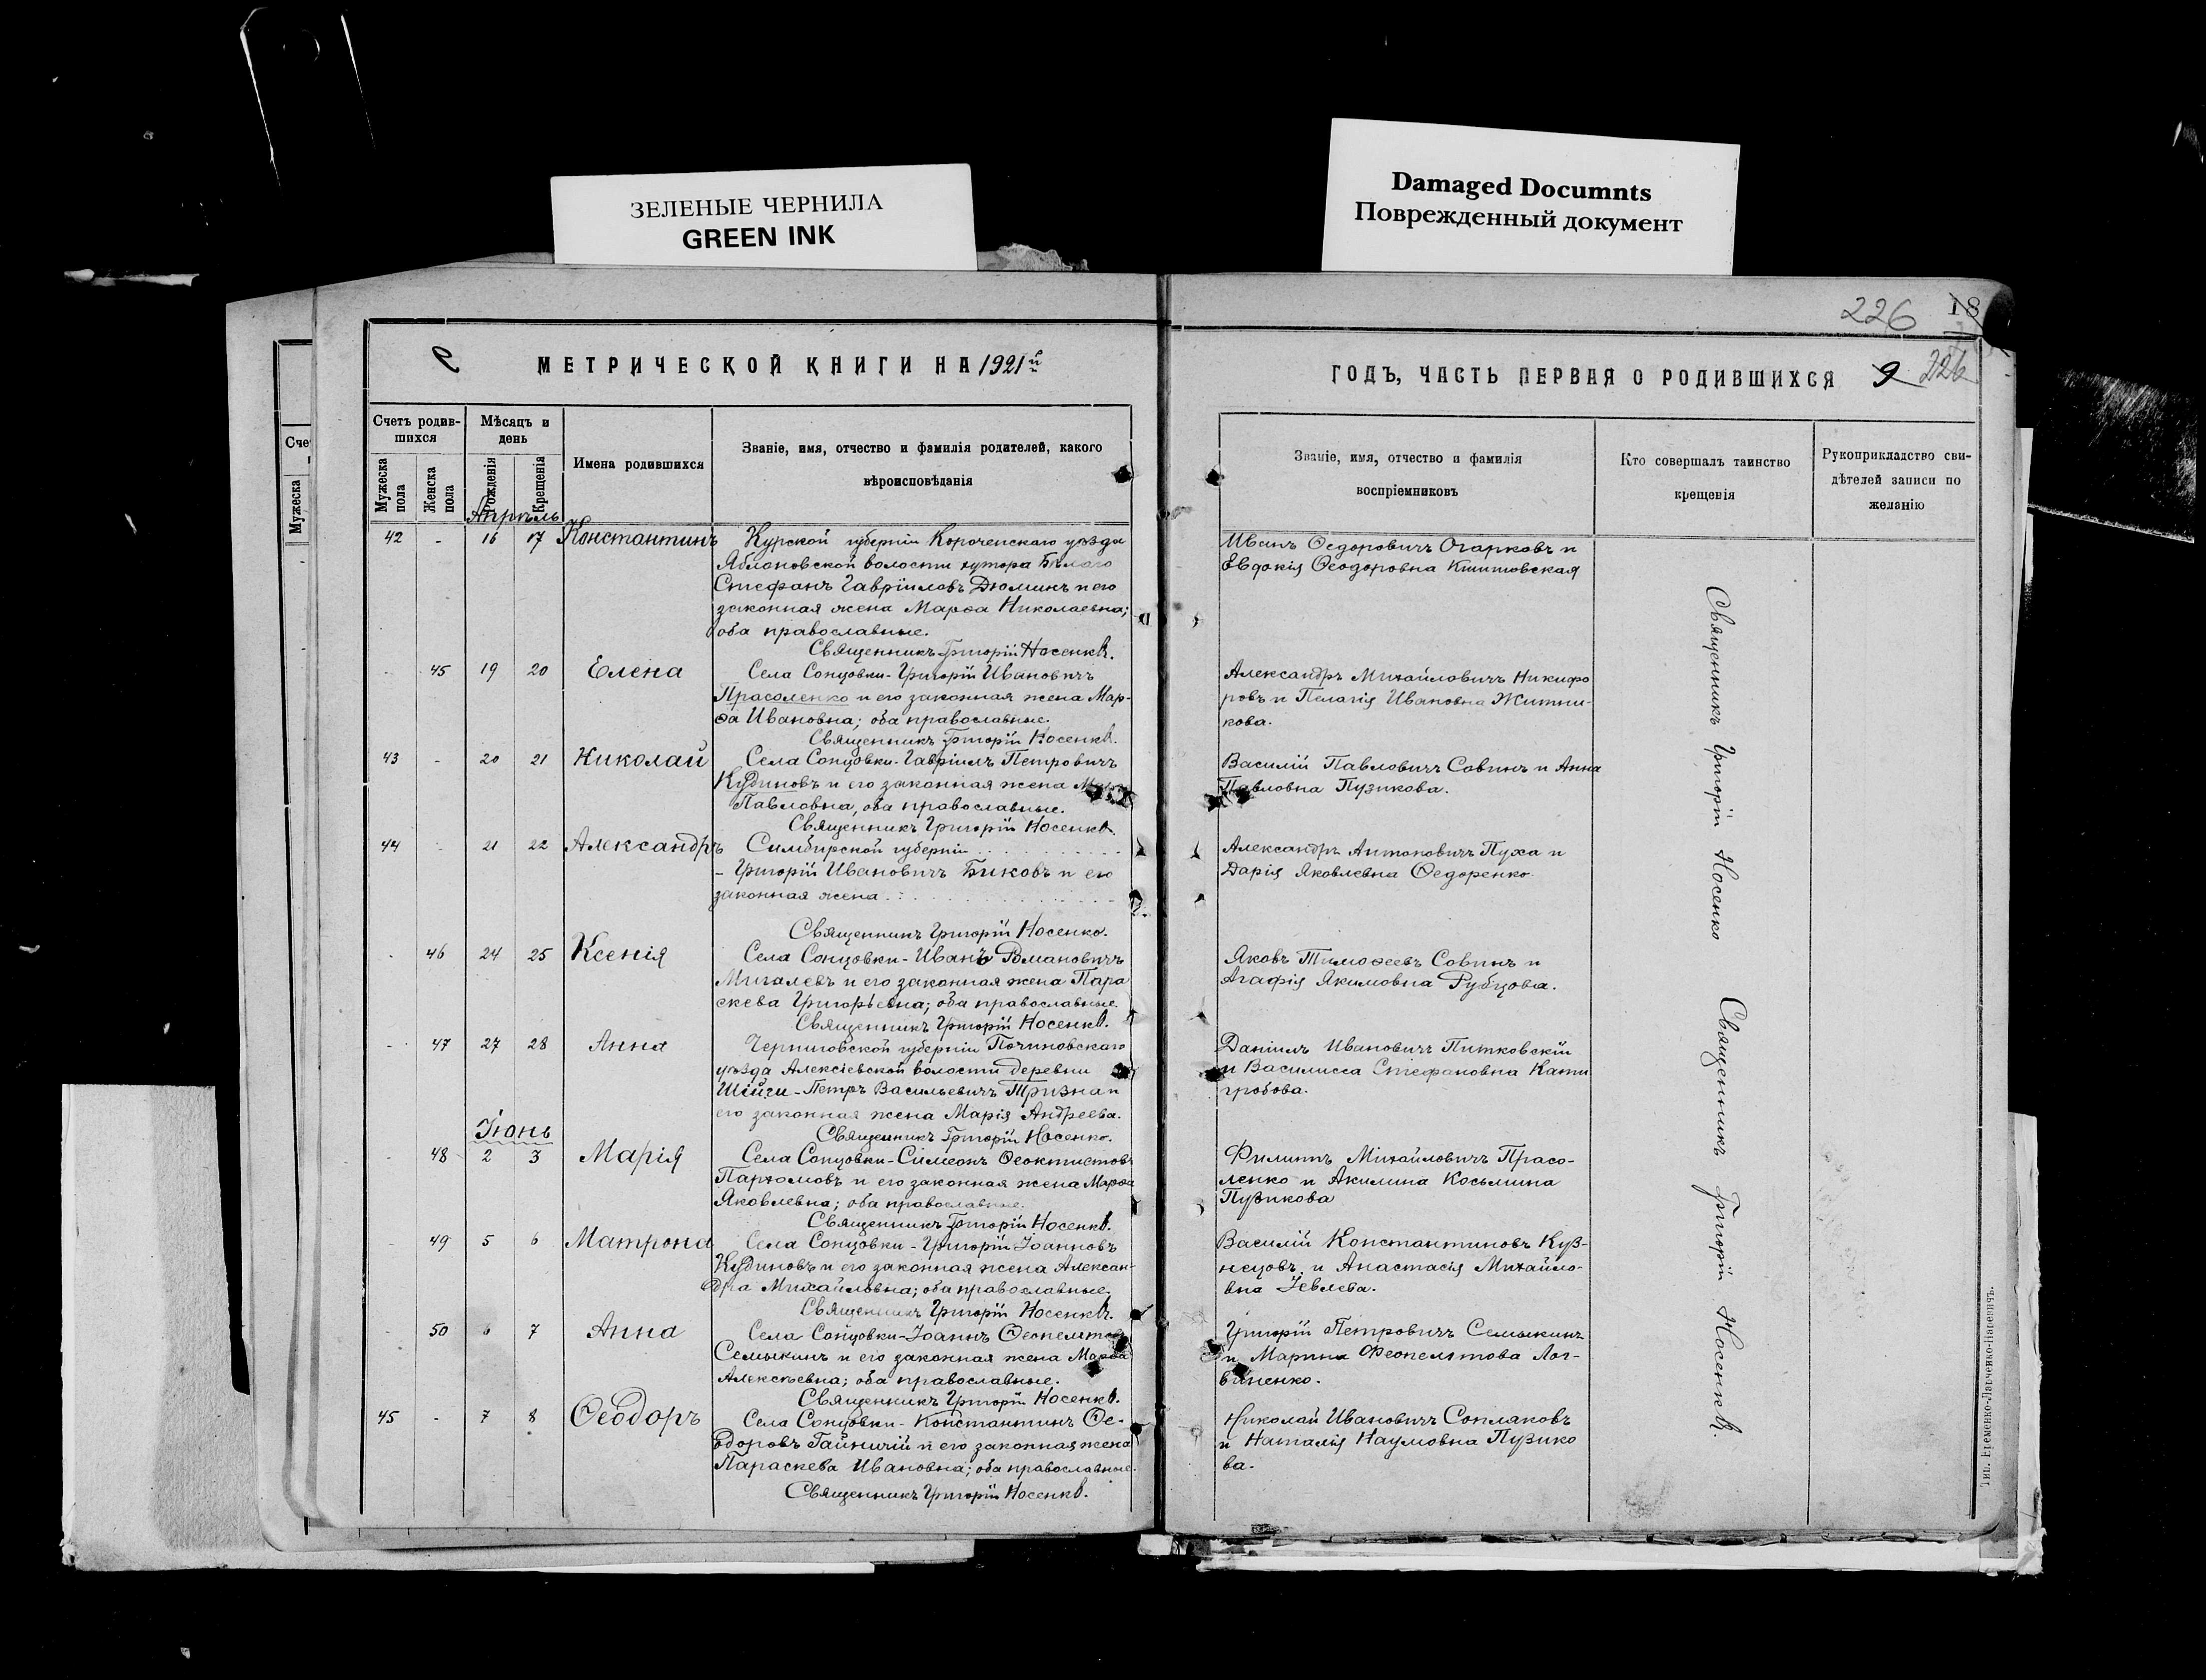 ЗЕЛЕНЫЕ ЧЕРНИЛА
GREEN INK
Damaged Documnts
Поврежденный документ
226 18
МЕТРИЧЕСКОЙ КНИГИ НА 1921й
ГОДЪ, ЧАСТЬ ПЕРВАЯ О РОДИВШИХСЯ 9 226
Счетъ родив-
шихся
Мужеска пола
Женска пола
Мѣсяцъ и
день
Рожденія
Крещенія
Имена родившихся
Званіе, имя, отчество и фамилія родителей, какого
вѣроисповѣданія
Званіе, имя, отчество и фамилія
воспріемниковъ
Кто совершалъ таинство
крещенія
Рукоприкладство сви-
дѣтелей записи по
желанію
Мужеска
Апрѣль
42 - 16 17 Константинъ
Курской губерніи Короченскаго уѣзда
Яблоновской волости хутора Бѣлаго
Стефанъ Гавріиловъ Дюминъ и его
законная жена Марѳа Николаевна;
оба православные.
Священникъ Григорій Носенко.
Иванъ Ѳедоровичъ Огарковъ и
Евдокія Ѳеодоровна
45 19 20 Елена
Села Сонцовки - Григорій Ивановичъ
Прасоленко и его законная жена Мар-
ѳа Ивановна; оба православные.
Священникъ Григорій Носенко.
Александръ Михайловичъ Никифо
ровъ и Пелагія Ивановна Житни-
кова.
43 - 20 21 Николай
Села Сонцовки - Гавріилъ Петровичъ
Кудиновъ и его законная жена
Павловна, оба православные.
Священникъ Григорій Носенко.
Василій Павловичъ Совинъ и Анна
Павловна Пузикова.
44 - 21 22 Александръ
Симбирской губерніи
- Григорій Ивановичъ Биковъ и его
законная жена
Священникъ Григорій Носенко.
Александръ Антоновичъ Пуха и
Дарія Яковлевна Ѳедоренко.
46 24 25 Ксенія
Села Сонцовки - Иванъ Романовичъ
Мигалевъ и его законная жена Пара
скева Григорьевна; оба православные.
Священникъ Григорій Носенко.
Яковъ Тимоѳеевъ Совинъ и
Агафія Якимовна Рубцова.
47 27 28 Анна
Черниговской губерніи
уѣзда Алексіевской волости деревни
- Петръ Васильевичъ Тризна и
его законная жена Марія Андреева.
Священникъ Григорій Носенко.
Даніилъ Ивановичъ Питковскій
и Василисса Стефановна Кати
гробова.
Іюнь
48 2 3 Марія
Села Сонцовки - Симеонъ Ѳеоктистовъ
Пархомовъ и его законная жена Марѳа
Яковлевна; оба православные.
Священникъ Григорій Носенко.
Филиппъ Михайловичъ Прасо-
ленко и Акилина Косьмина
Пузикова
49 5 6 Матрона
Села Сонцовки - Григорій Іоанновъ
Кудиновъ и его законная жена Алексан-
дра Михайловна; оба православные.
Священникъ Григорій Носенко.
Василій Константиновъ Куз-
нецовъ и Анастасія Михайло-
вна
50 6 7 Анна
Села Сонцовки - Іоаннъ
Семыкинъ и его законная жена Марѳа
Алексѣевна; оба православные.
Священникъ Григорій Носенко.
Григорій Петровичъ Семыкинъ
и Марина Феопемтова Лог-
виненко.
45 - 7 8 Ѳеодоръ
Села Сонцовки - Константинъ Ѳе-
одоровъ и его законная жена
Параскева Ивановна; оба православные.
Священникъ Григорій Носенко.
Николай Ивановичъ Сопляковъ
и Наталія Наумовна Пузико
ва.
Священникъ Григорій Носенко
Священникъ Григорій Носенко.